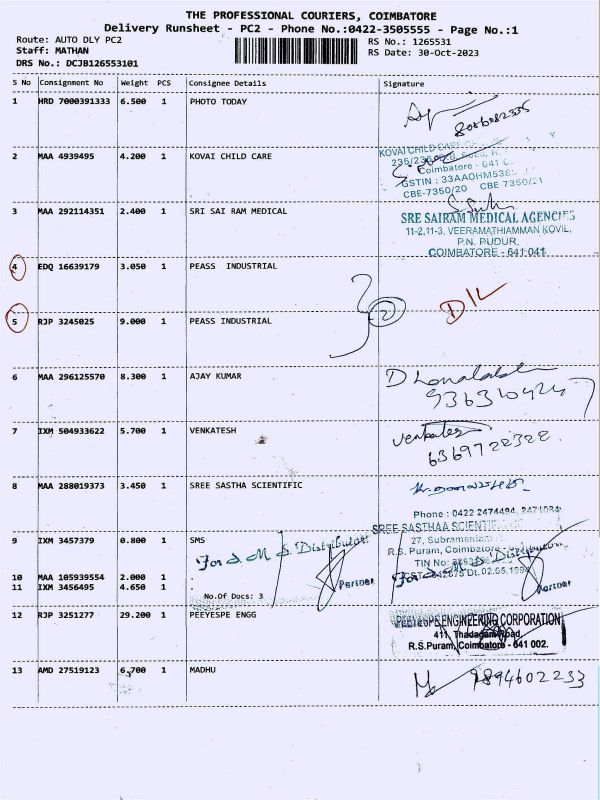 THE PROFESSIONAL COURIERS, COIMBATORE
Delivery Runsheet - PC2 - Phone No.:0422-3505555 - Page No.:1
Route: AUTO DLY PC2
RS No.: 1265531
Staff: MATHAN
RS Date: 30-Oct-2023
DRS No.: DCJB126553101
S No Consignment No Weight PCS Consignee Details Signature
1 HRD 7000391333 6.500 1 PHOTO TODAY
2 MAA 4939495 4.200 1 KOVAI CHILD CARE
KOVAI CHILD CARE
Coimbatore - 641
GSTIN : 33AAOHM536
CBE-7350/20 CBE-7350/21
3 MAA 292114351 2.400 1 SRI SAI RAM MEDICAL
SRE SAIRAM MEDICAL AGENCIES
11-2,11-3, VEERAMATHIAMMAN KOVIL,
P.N. PUDUR,
COIMBATORE - 641 041
4 EDQ 16639179 3.050 1 PEASS INDUSTRIAL
2 D/L
5 RJP 3245025 9.000 1 PEASS INDUSTRIAL
6 MAA 296125570 8.300 1 AJAY KUMAR
7 IXM 504933622 5.700 1 VENKATESH
Venkatesh
6369722322
8 MAA 288019373 3.450 1 SREE SASTHA SCIENTIFIC
Phone : 0422 2474494, 2471084
SREE SASTHAA SCIENTIFIC
27, Subramaniam
R.S. Puram, Coimbatore
TIN No:
Dt. 02.05.1994
9 IXM 3457379 0.800 1 SMS
For S. M. S. Distributors
Partner
For S. M. S. Distributors
Partner
10 MAA 105939554 2.000 1
11 IXM 3456495 4.650 1
No.Of Docs: 3
12 RJP 3251277 29.200 1 PEEYESPE ENGG
ENGINEERING CORPORATION
411, Thadagam Road,
R.S.Puram, Coimbatore - 641 002.
13 AMD 27519123 6.700 1 MADHU
9894602233